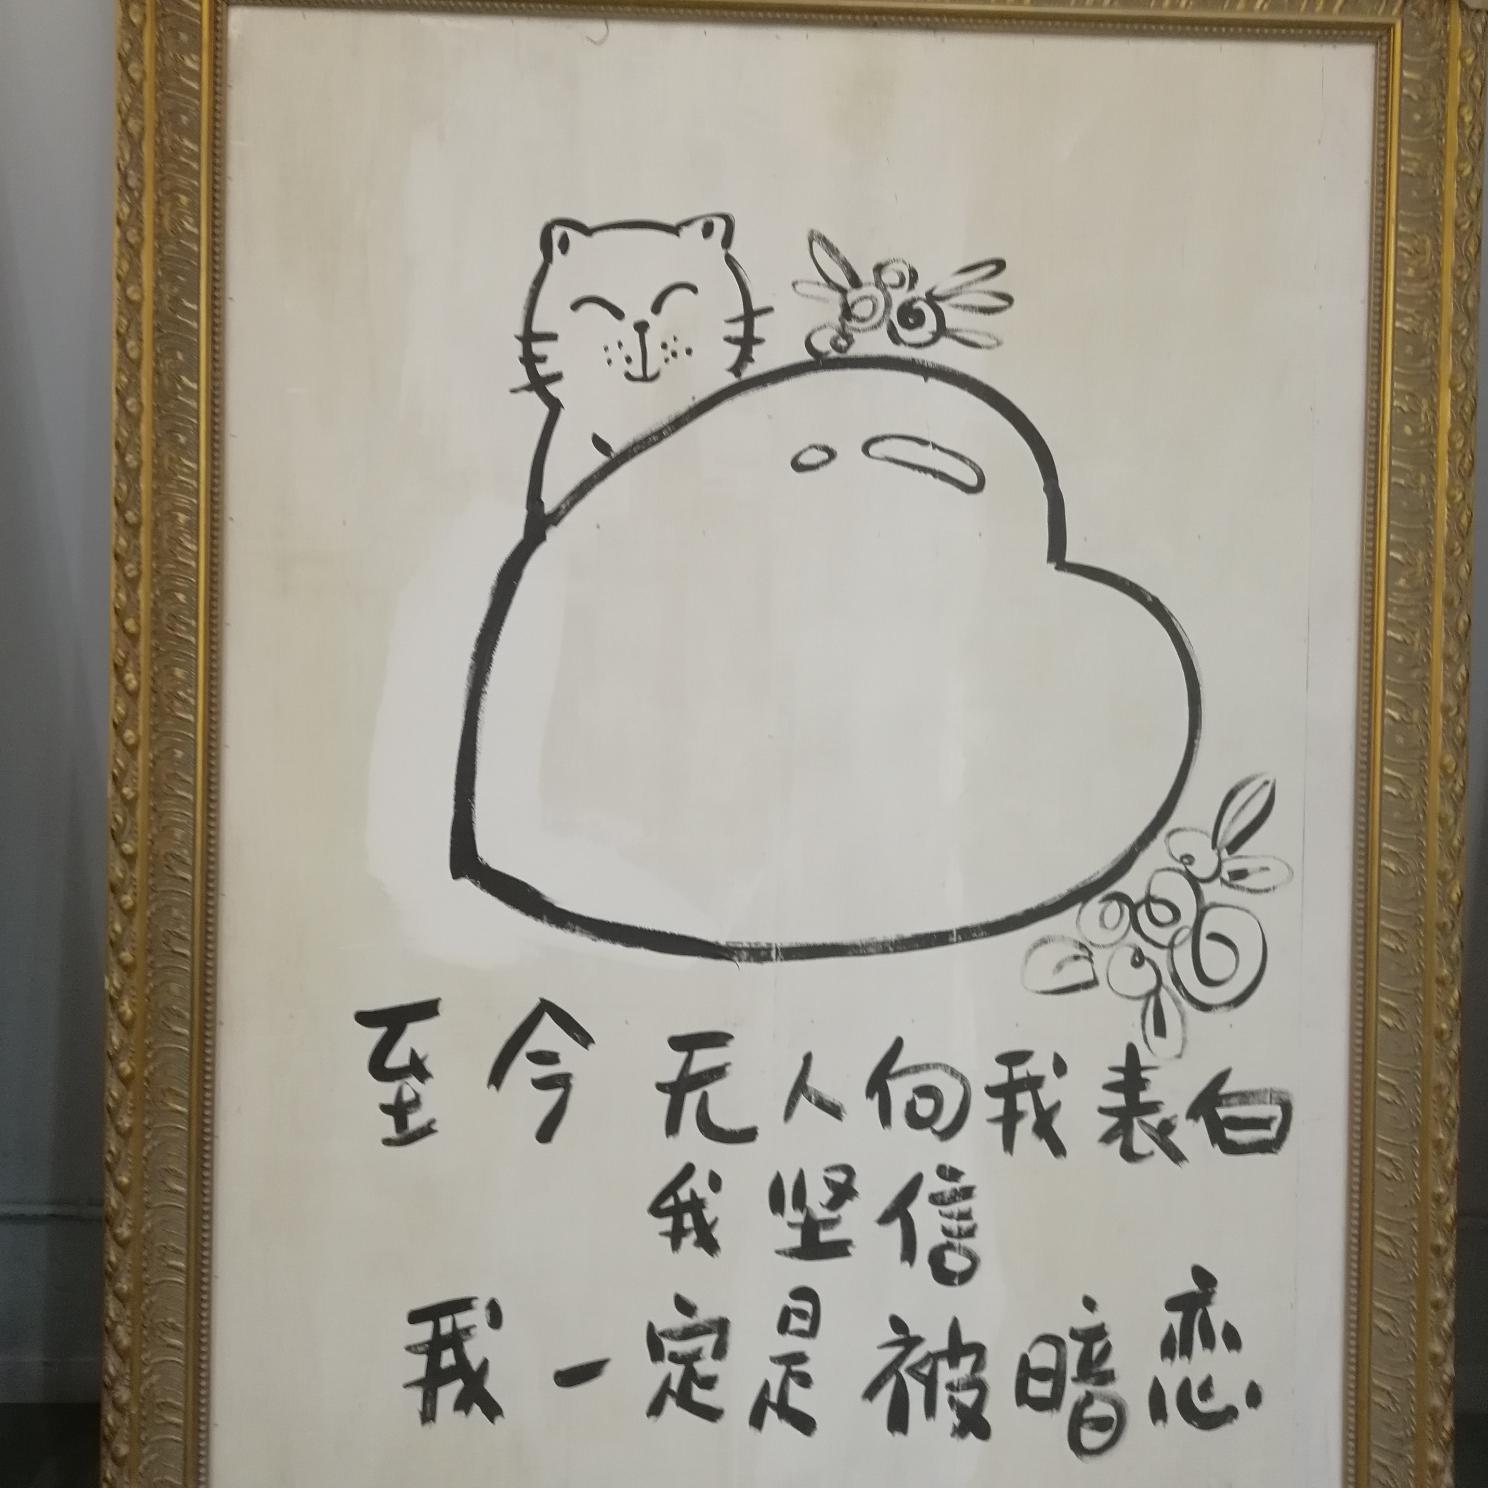 至今无人向我表白
我坚信
我一定是被暗恋